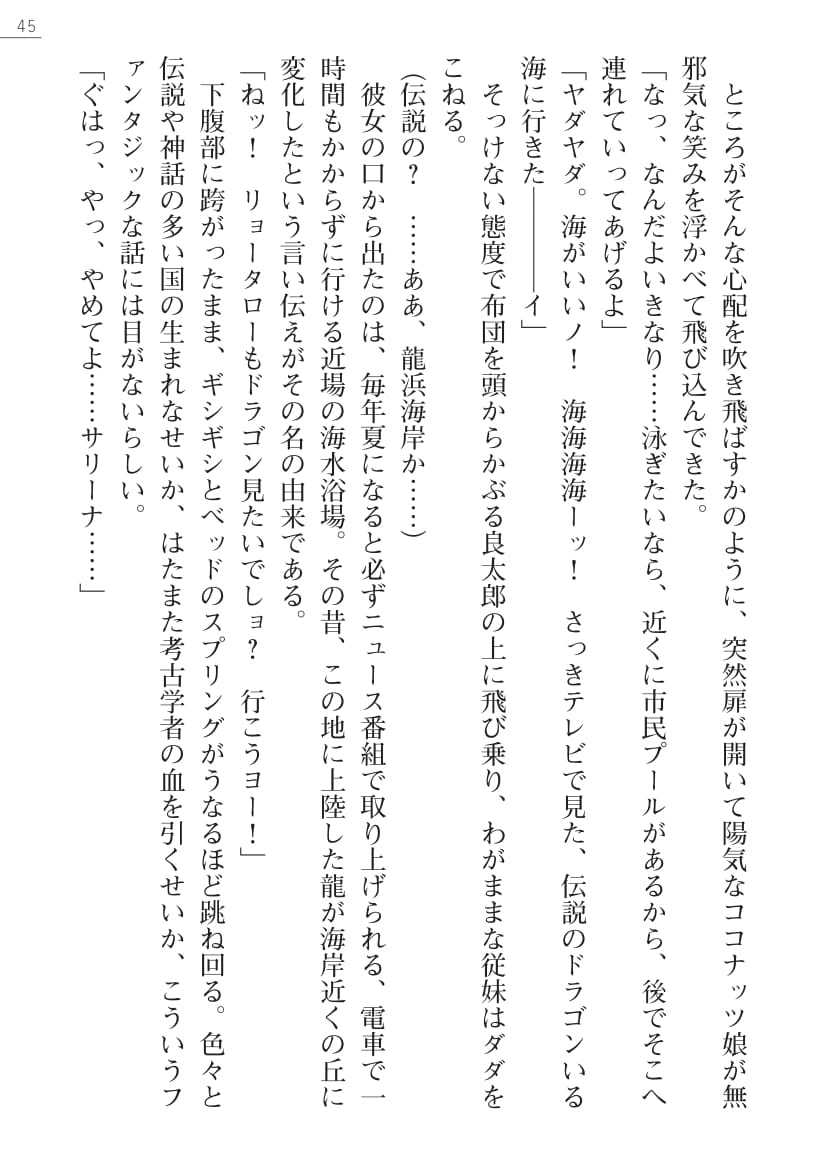 45
ところがそんな心配を吹き飛ばすかのように、突然扉が開いて陽気なココナッツ娘が無
邪気な笑みを浮かべて飛び込んできた。
「なっ、なんだよいきなり……泳ぎたいなら、近くに市民プールがあるから、後でそこへ
連れていってあげるよ」
「ヤダヤダ。海がいいノ！　海海海海ーッ！　さっきテレビで見た、伝説のドラゴンいる
海に行きた――――イ」
そっけない態度で布団を頭からかぶる良太郎の上に飛び乗り、わがままな従妹はダダを
こねる。
（伝説の？　……ああ、龍浜海岸か……）
彼女の口から出たのは、毎年夏になると必ずニュース番組で取り上げられる、電車で一
時間もかからずに行ける近場の海水浴場。その昔、この地に上陸した龍が海岸近くの丘に
変化したという言い伝えがその名の由来である。
「ねッ！　リョータローもドラゴン見たいでショ？　行こうヨー！」
下腹部に跨がったまま、ギシギシとベッドのスプリングがうなるほど跳ね回る。色々と
伝説や神話の多い国の生まれなせいか、はたまた考古学者の血を引くせいか、こういうフ
ァンタジックな話には目がないらしい。
「ぐはっ、やっ、やめてよ……サリーナ……」